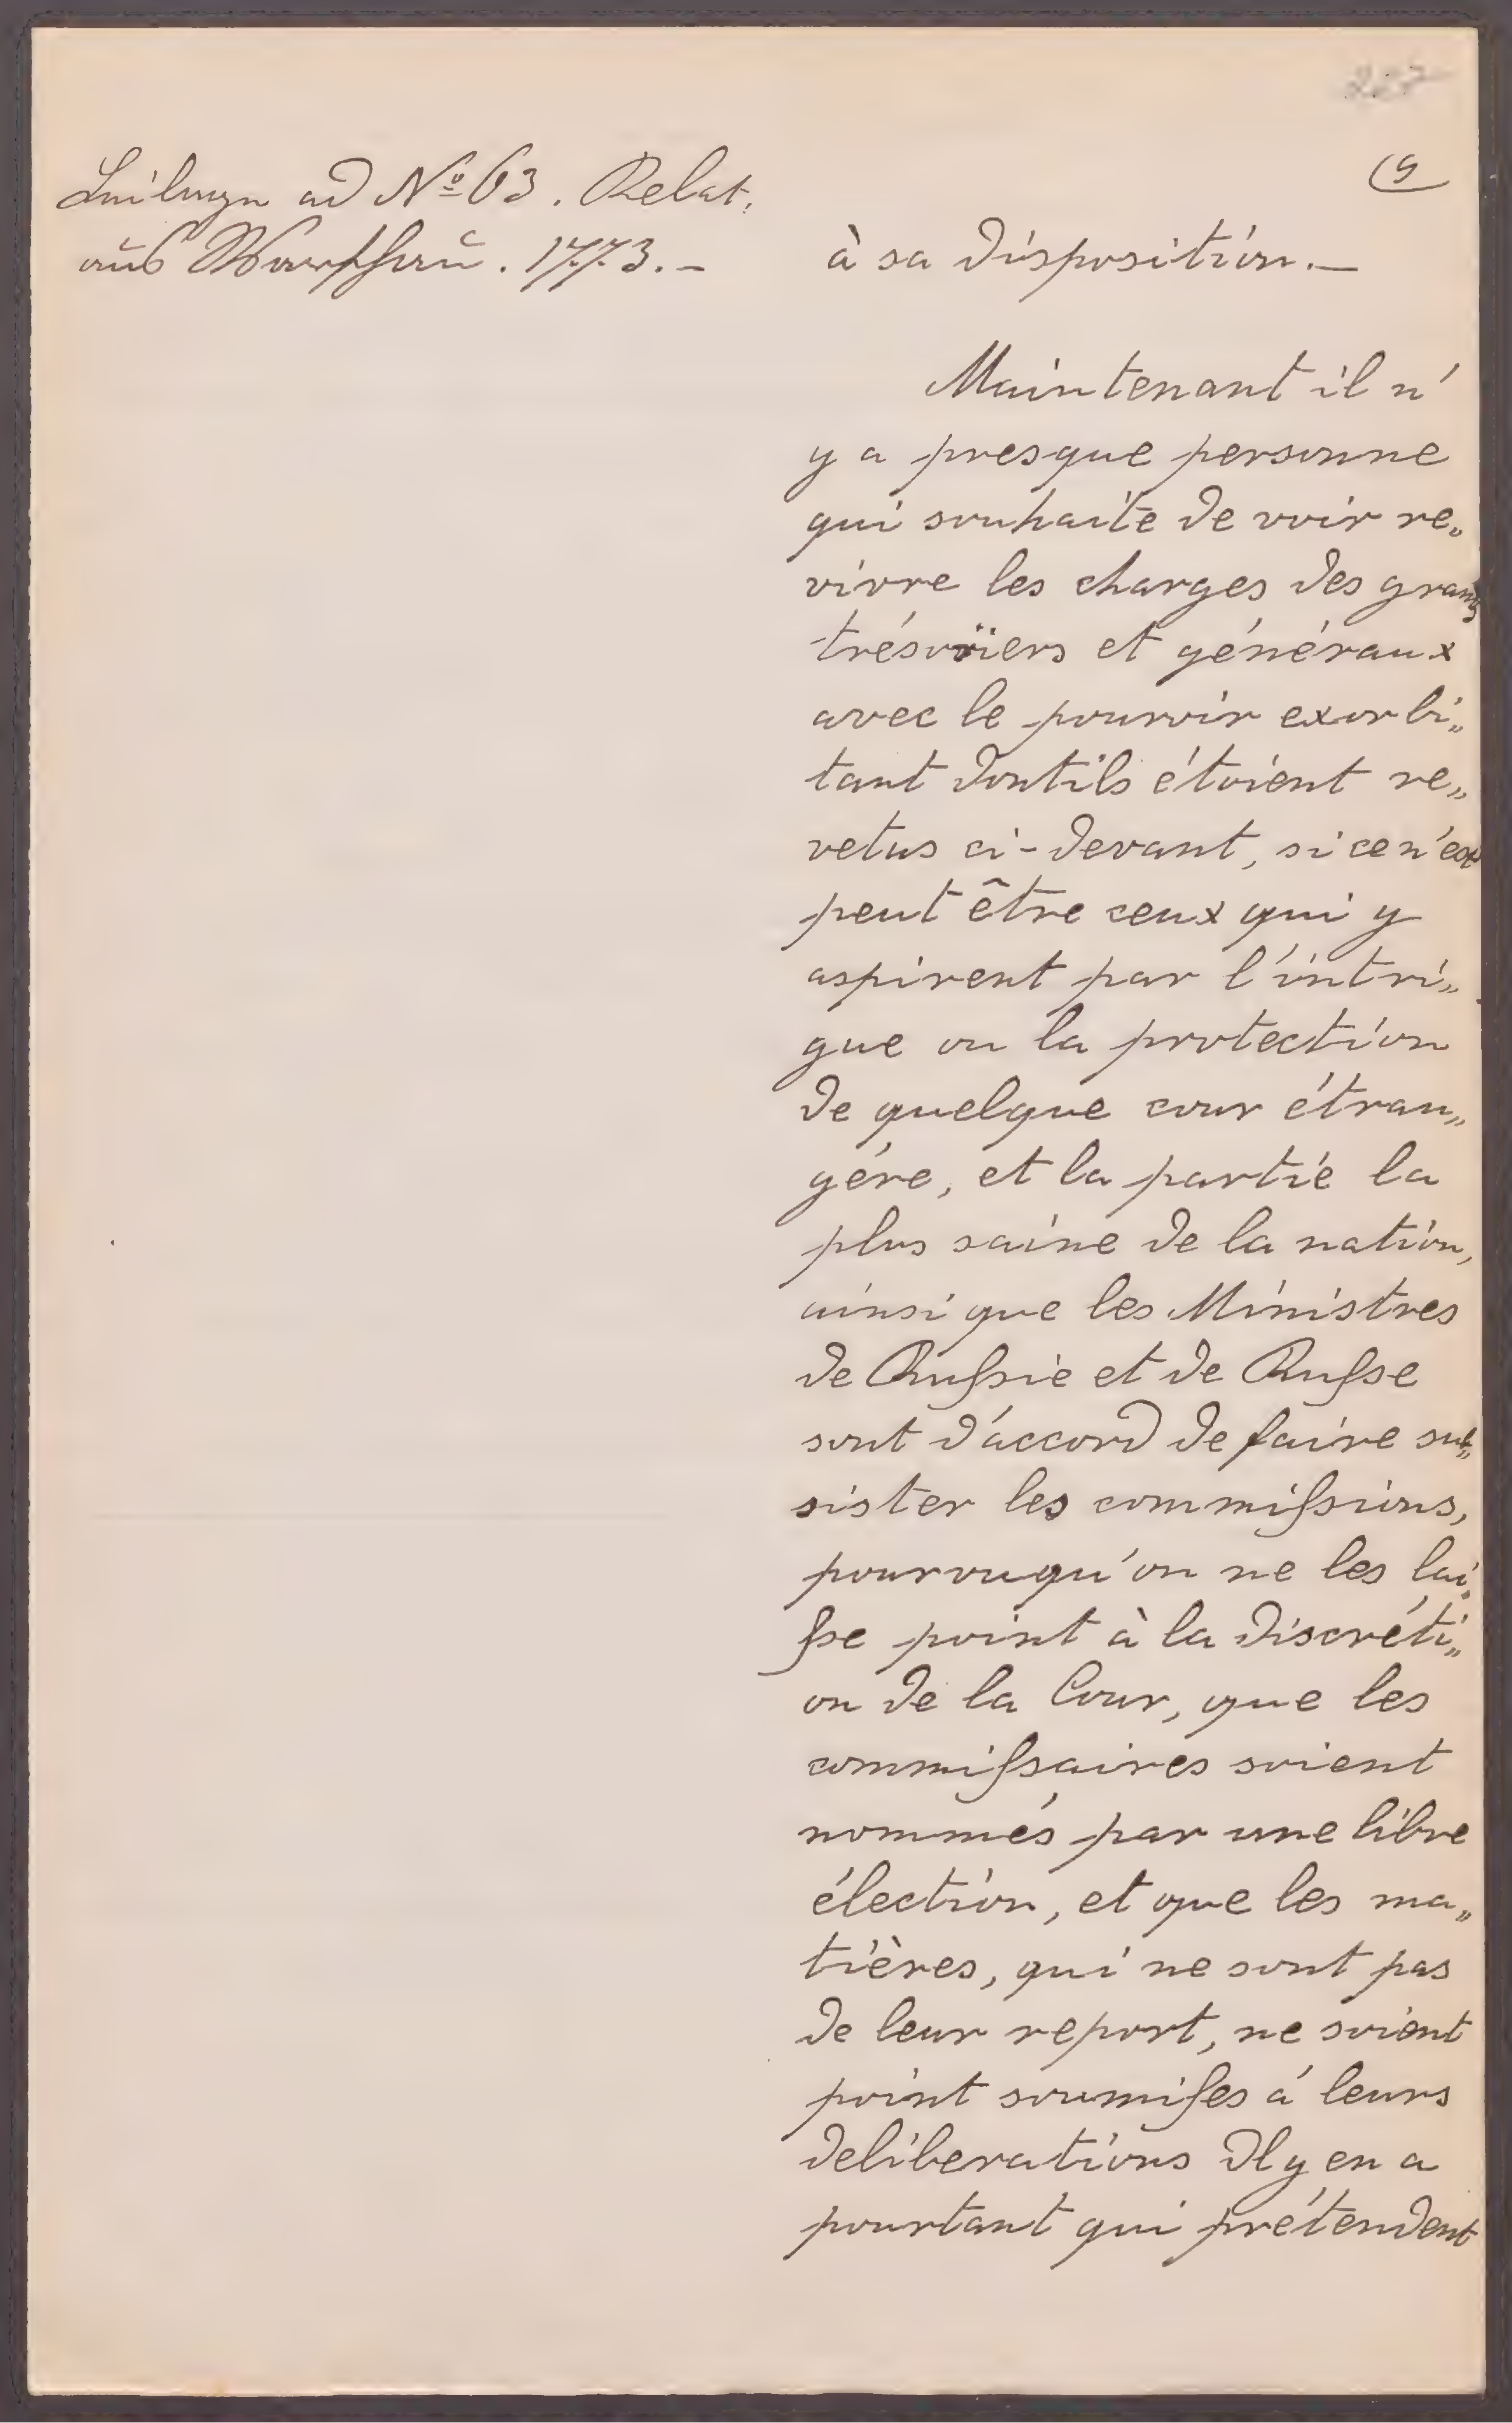 (9
Beilagen ad Nº 63. Relat.
aus Warschau. 1773.-
à sa disposition.—
Maintenant il n'
y a presque personne
qui souhaite de voir re„
vivre les charges des grands
trésoriers et généraux
avec le pouvoir exorbi„
tant dont ils étoient re„
vetus ci-devant, si ce n'est
peut être ceux qui y
aspirent par l'intri„
gue ou la protection
de quelque cour étran„
gére, et la partie la
plus saine de la nation,
ainsi que les Ministres
de Rußie et de Ruße
sont d'accord de faire sub„
sister les commißions,
pourvu qu'on ne les lai„
ße point à la discréti„
on de la Cour, que les
commißaires soient
nommés par une libre
élection, et que les ma„
tières, qui ne sont pas
de leur report, ne soient
point soumises á leurs
deliberations Il y en a
pourtant qui prétendent